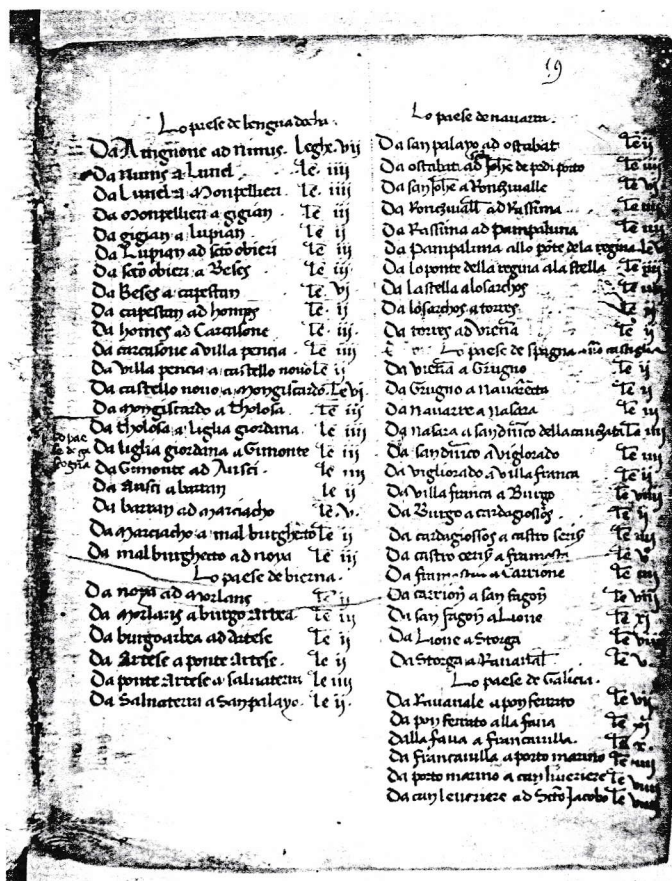 19
Lo paese de lenguadochu
Da Auignone ad Nimis. leghe. vij
Da Nimis a Lunel. le. iiij
Da Lunel a Monpellieri le. iiij
Da Monpellieri a gigian. le iij
Da gigian a lupian. le ij
Da Lupian ad scto obieri le iij
Da scto obieri a Beses le iij
Da Beses a capestan le. vj
Da capestan ad homps le. ij
Da homes ad Carcasone le iij
Da carcasone a villa pencia le iiij
Da villa pencia a castello nouo le ij
Da castello nouo a mongiscardo. le vj
Da mongiscardo a tholosa. le iij
Da tholosa a liglia giordana. le iiij
Lo pae
se de ga
scogna
Da liglia giordana a Gimonte le iij
Da Gimonte ad Ausci. le iiij
Da Ausci a barran le ij
Da barran ad marciacho le. v.
Da Marciacho a mal burghetto le ij
Da mal burghetto ad noya le iij
Lo paese de bierna.
Da noya ad morlans le ij
Da morlans a burgo arbea le iij
Da burgo arbea ad Artese le ij
Da Artese a ponte Artese. le ij
Da ponte Artese a saluaterra le iiij
Da Saluaterra a Sanpalayo. le ij.
Lo paese de nauarra.
Da san palayo ad ostabat le ij
Da ostabat ad S Johe de pedi porto le iiij
Da san Johe a Roncizualle le vj
Da Roncizuall ad Rassima le iiij
Da Rassima ad Pampaluna le iiij
Da Pampaluna allo pote dela regina le v
Da lo ponte della regina a la stella le iiij
Da la stella a losarchos le iiij
Da losarchos a torres le ij
Da torres ad viena le ij
Lo paese de spagna castiglia
Da viena a Grugno le ij
Da Grugno a nauaretta le ij
Da nauarre a nasara le iij
Da nasara a san dinico della causata le iiij
Da san dinico a viglorado le iiij
Da vigliorado a villa franca le ij
Da villa franca a Burgo le viiij
Da Burgo a cardagiossos. le ij
Da cardagiossos a castro seris le iiij
Da castro ceris a
Da a Carrione le iiij
Da carrion a san fagon le viij
Da san fagon a Lione le xj
Da Lione a Storga le viiij
Da Storga a Rauanal. le v
Lo paese de Galicia.
Da Rauanale a pon ferrato le vij
Da pon ferrato alla faua le xj
Dalla faua a francauilla. le x.
Da francauilla a porto marino le iiij
Da porto marino a can luueriere le viiij
Da can leueriere ad Scto Jacobo le viiij